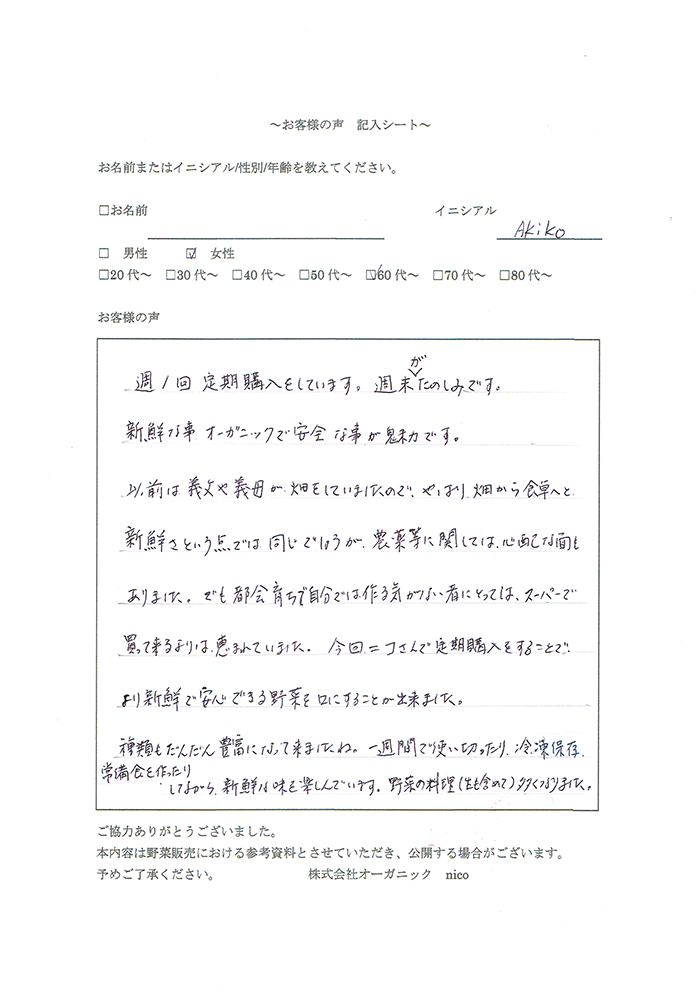 ～お客様の声 記入シート～
お名前またはイニシアル/性別/年齢を教えてください。
□お名前 イニシアル Akiko
□ 男性 ☑ 女性
□20代～ □30代～ □40代～ □50代～ ☑60代～ □70代～ □80代～
お客様の声
週1回 定期購入をしています。週末がたのしみです。
新鮮な事 オーガニックで安全な事が魅力です。
以前は義父や義母が畑をしていましたので、やはり畑から食卓へと
新鮮さという点では同じでしょうが、農薬等に関しては、心配な面も
ありました。でも都会育ちで自分では作る気がない者にとっては、スーパーで
買って来るよりは、恵まれていました。今回ニコさんで定期購入をすることで、
より新鮮で安心できる野菜を口にすることが出来ました。
種類もだんだん豊富になって来ましたね。一週間で使い切ったり、冷凍保存、
常備食を作ったり
しながら、新鮮な味を楽しんでいます。野菜の料理(生も含めて)多くなりました。
ご協力ありがとうございました。
本内容は野菜販売における参考資料とさせていただき、公開する場合がございます。
予めご了承ください。 株式会社オーガニック nico